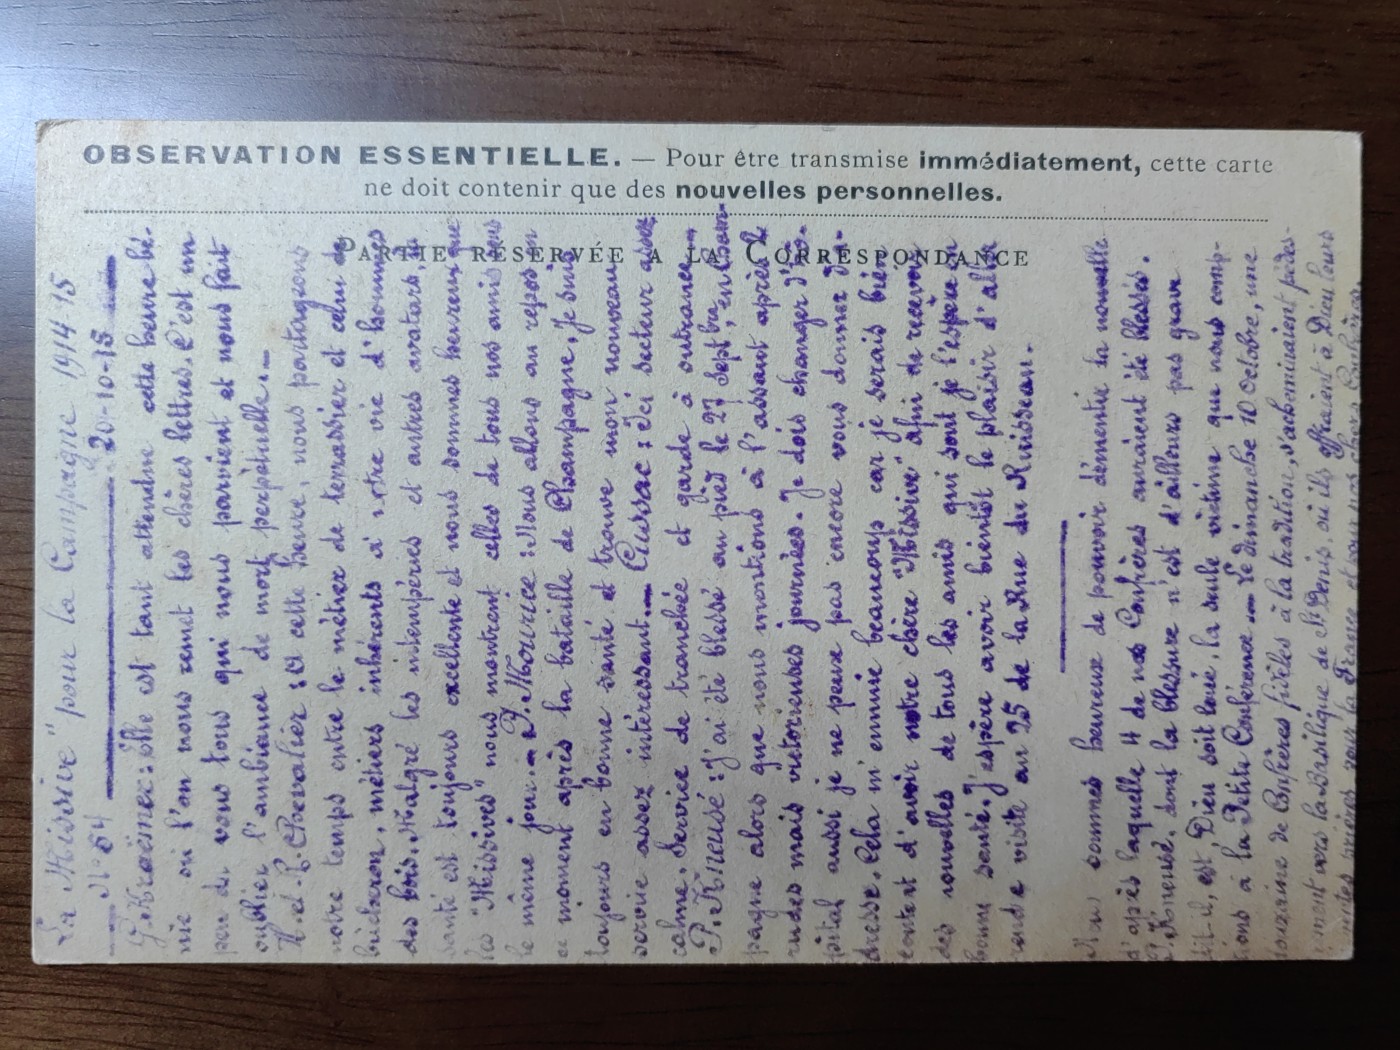 OBSERVATION ESSENTIELLE. — Pour être transmise immédiatement, cette carte
ne doit contenir que des nouvelles personnelles.
PARTIE RÉSERVÉE A LA CORRESPONDANCE
La "Missive" pour la Campagne 1914-15
N° 64 20-10-15
Elle est tant attendue cette heure bé-
nie où l'on nous remet les chères lettres. C'est un
peu de vous tous qui nous parvient et nous fait
oublier l'ambiance de mort perpétuelle.—
H. et R. Chevalier : à cette heure, nous partageons
notre temps entre le métier de terrassier et celui de
bûcheron, métiers inhérents à notre vie d'hommes
des bois. Malgré les intempéries et autres avatars, la
santé est toujours excellente et nous sommes heureux que
les "Missives" nous montrent celles de tous nos amis
le même jour.— P. Mourice : Nous allons au repos en
ce moment après la bataille de Champagne. Je suis
toujours en bonne santé et trouve mon nouveau
service assez intéressant.— Cussac : Ici secteur assez
calme. Service de tranchée et garde à outrance.—
P. Kneusé : J'ai été blessé au pied le 27 Sept bre, en Cham-
pagne alors que nous montions à l'assaut après de
rudes mais victorieuses journées. Je dois changer d'hô-
pital aussi je ne peux pas encore vous donner d'a-
dresse. Cela m'ennuie beaucoup car je serais bien
content d'avoir notre chère "Missive" afin de recevoir
des nouvelles de tous les amis qui sont je l'espère en
bonne santé. J'espère avoir bientôt le plaisir d'aller
rendre visite au 25 de la Rue du Ruisseau.
Nous sommes heureux de pouvoir démentir la nouvelle
d'après laquelle 4 de nos Confrères auraient été blessés.
P. Kneusé, dont la blessure n'est d'ailleurs pas grave
dit-il, est, Dieu soit loué, la seule victime que nous comp-
tions à la Petite Conférence.— Le dimanche 10 Octobre, une
douzaine de Confrères fidèles à la tradition, s'acheminaient pédes-
trement vers la Basilique de St Denis, où ils offraient à Dieu leurs
prières pour la France et pour nos chers Confrères.